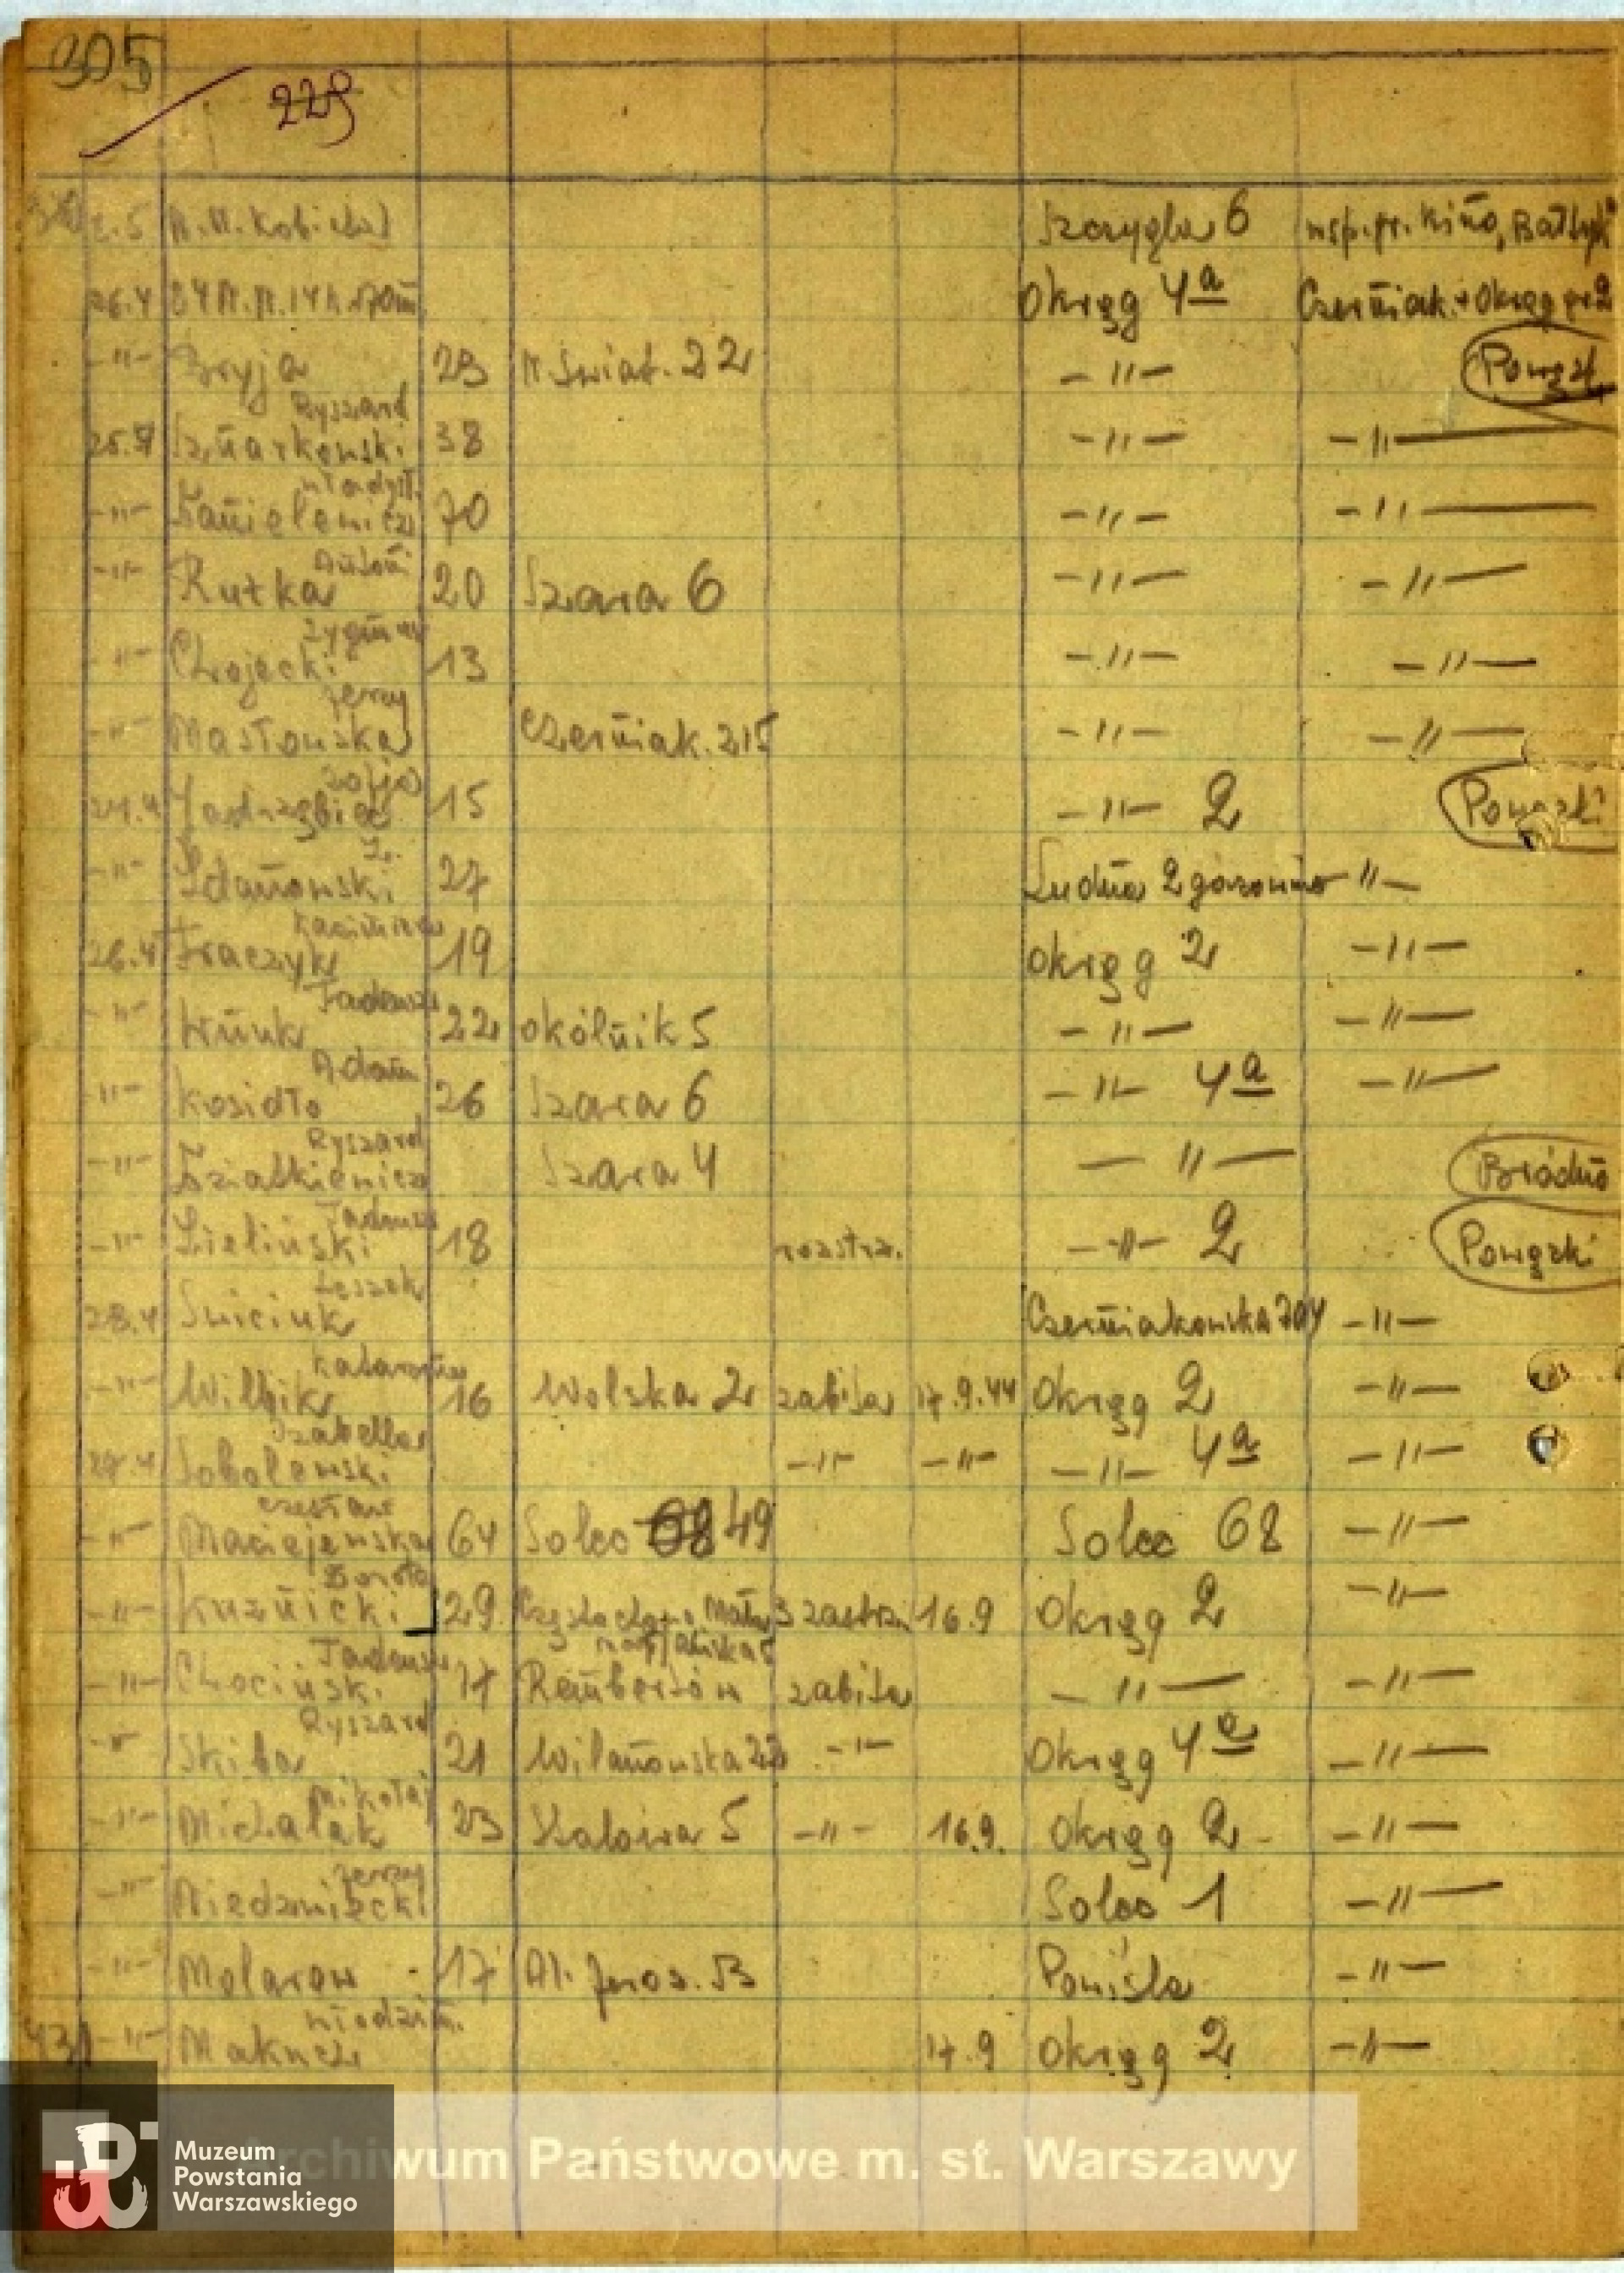 305
229
2.5 N.N. Kobieta Szczygla 6 wsp. gr. Kino, Bałtyk"
26.4 34 N.N. 14 k 20 m Okręg 4a Czerniak. + Okręg gr 2
-"- Gryja 23 N. Świat. 22 -"- Powązk
Ryszard
25.4 38 -"- -"-
Władysł.
-"- 70 -"- -"-
Antoni
-"- Rutka 20 Szara 6 -"- -"-
Zygmunt
-"- Chojecki 13 -"- -"-
Jerzy
-"- Masłowska Czerniak. 215 -"- -"-
Zofja
24.4 15 -"- 2 Powązki
Z.
-"- Zdanowski 27 Ludna 2 gazownia "-
Kazimierz
26.4 Fraczyk 19 Okręg 2 -"-
Tadeusz
-"- Wnuk 22 Okólnik 5 -"- -"-
Adam
-"- Kosidło 26 Szara 6 -"- 4a -"-
Ryszard
-"- Szara 4 -"- Bródno
Tadeusz
-"- Zieliński 18 rozstrz. -"- 2 Powązki
Leszek
28.4 Czerniakowska -"-
Katarzyna
-"- Wilbik 16 Wolska 2 zabita 17.9.44 Okręg 2 -"-
Izabella
27.4 Sobolewski -"- -"- -"- 4a -"-
Czesław
-"- Maciejewska 64 Solec 68 49 Solec 68 -"-
Dorota
-"- Kuźnicki 29 16.9 Okręg 2 -"-
Tadeusz
-"- Chociński 17 Rembertów zabita -"- -"-
Ryszard
-"- Skiba 21 Wilanowska 22 -"- Okręg 4a -"-
Mikołaj
-"- Michalak 23 Stalowa 5 -"- 16.9. Okręg 2 -"-
Jerzy
-"- Niedzwiecki Solec 1 -"-
-"- Molarow 17 Al. Jeroz. Powiśla -"-
Włodzim.
431 -"- 17.9 Okręg 2 -"-
Muzeum
Powstania
Warszawskiego
Archiwum Państwowe m. st. Warszawy